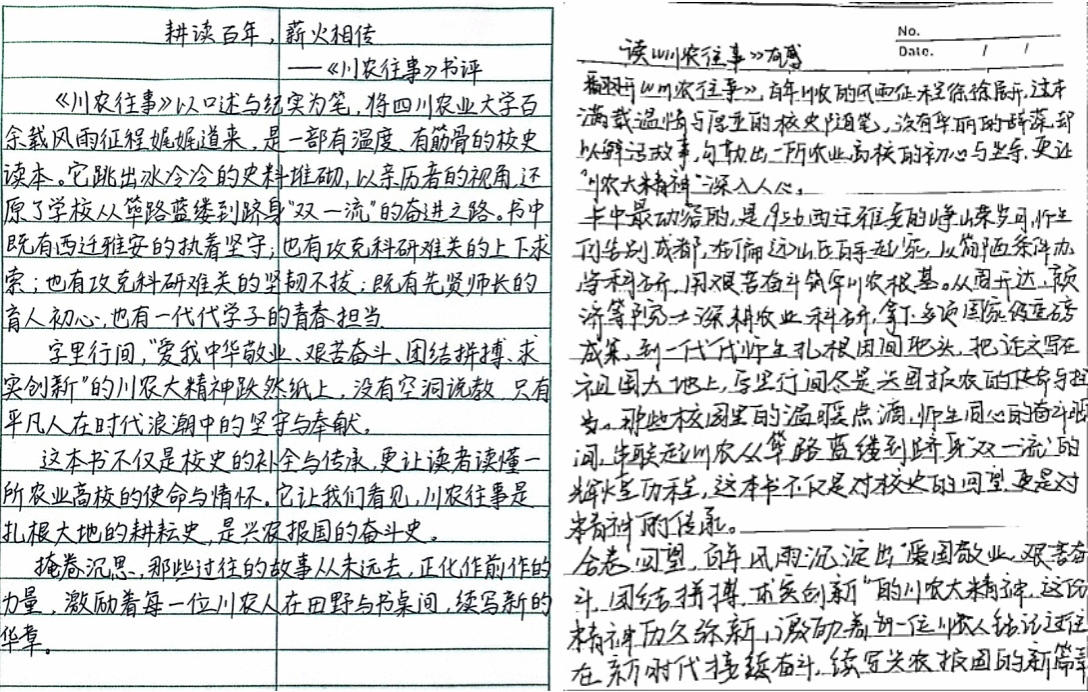 耕读百年，薪火相传
——《川农往事》书评
《川农往事》以口述与纪实为笔，将四川农业大学百
余载风雨征程娓娓道来，是一部有温度、有筋骨的校史
读本。它跳出冰冷冷的史料堆砌，以亲历者的视角，还
原了学校从筚路蓝缕到跻身“双一流”的奋进之路。书中
既有西迁雅安的执着坚守；也有攻克科研难关的上下求
索；也有攻克科研难关的坚韧不拔；既有先贤师长的
育人初心，也有一代代学子的青春担当
字里行间，“爱我中华敬业、艰苦奋斗、团结拼搏、求
实创新”的川农大精神跃然纸上，没有空洞说教，只有
平凡人在时代浪潮中的坚守与奉献。
这本书不仅是校史的补全与传承，更让读者读懂一
所农业高校的使命与情怀。它让我们看见，川农往事是
扎根大地的耕耘史，是兴农报国的奋斗史。
掩卷沉思，那些过往的故事从未远去，正化作前作的
力量，激励着每一位川农人在田野与书桌间，续写新的
华章。
No.
Date. / /
读《川农往事》有感
翻开《川农往事》，百年川农的风雨征程徐徐展开，这本
满载温情与厚重的校史随笔，没有华丽的辞藻，却
以鲜活故事，勾勒出一所农业高校的初心与坚守，更让
“川农大精神”深入人心。
书中最动容的，是1956西迁雅安的峥嵘岁月，师生
们告别成都，在偏远山区白手起家，从简陋条件办
学科研，用艰苦奋斗筑牢川农根基。从周开达、颜
济等院士深耕农业科研，拿下多项国家级重磅
成果，到一代代师生扎根田间地头，把论文写在
祖国大地上，字里行间尽是兴国报农的使命与担
当。那些校园里的温暖点滴，师生同心的奋斗瞬
间，串联起川农从筚路蓝缕到跻身“双一流”的
辉煌历程，这本书不仅是对校史的回望，更是对
精神的传承。
合卷回望，百年风雨沉淀出“爱国敬业、艰苦奋
斗、团结拼搏、求实创新”的川农大精神，这份
精神历久弥新，激励着每一位川农人铭记过往
在新时代接续奋斗，续写兴农报国的新篇章